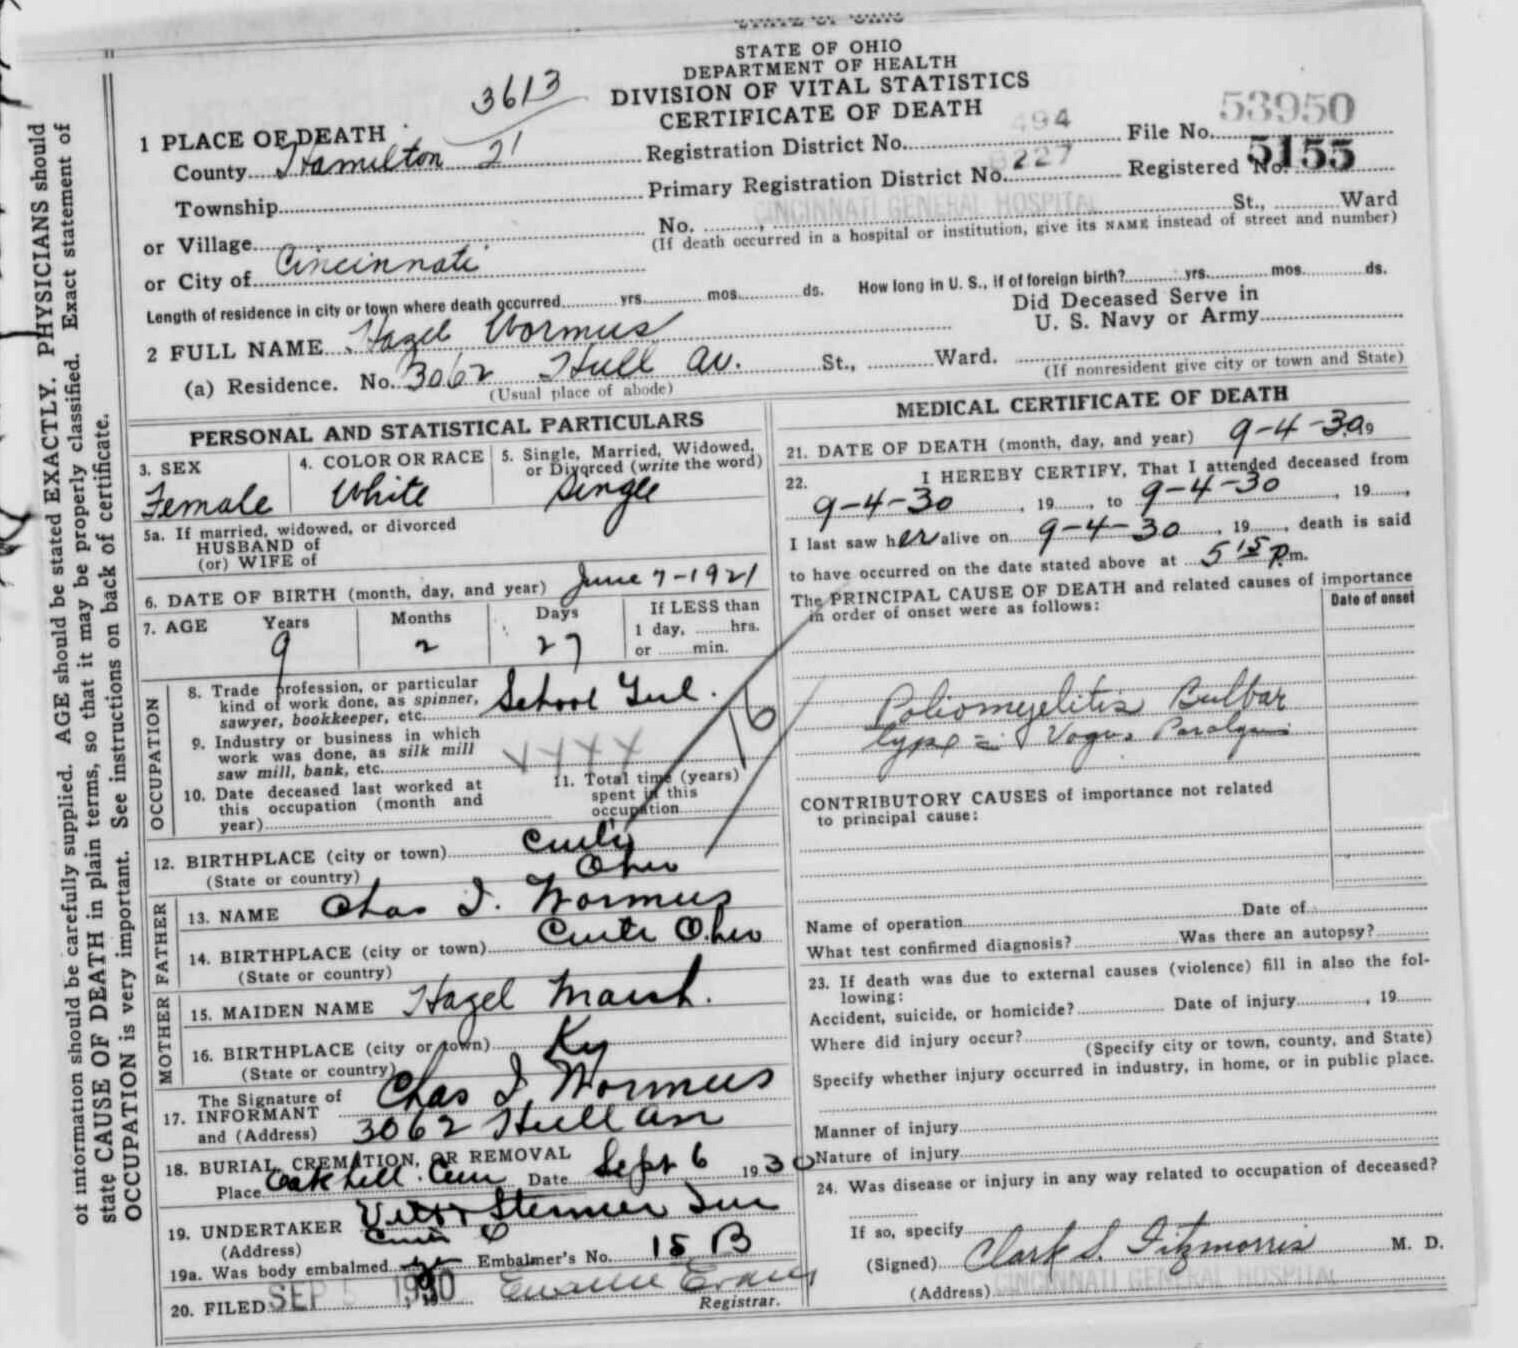 STATE OF OHIO
DEPARTMENT OF HEALTH
DIVISION OF VITAL STATISTICS
CERTIFICATE OF DEATH
3613
21
1 PLACE OF DEATH
County Hamilton
Registration District No. 494
File No. 53950
Township
Primary Registration District No. 8227
Registered No. 5155
or Village
No. CINCINNATI GENERAL HOSPITAL St., Ward
(If death occurred in a hospital or institution, give its NAME instead of street and number)
or City of Cincinnati
Length of residence in city or town where death occurred yrs. mos. ds. How long in U. S., if of foreign birth? yrs. mos. ds.
Did Deceased Serve in
U. S. Navy or Army
2 FULL NAME Hazel Wormus
(a) Residence. No. 3062 Hull Av. St., Ward.
(Usual place of abode)
(If nonresident give city or town and State)
PERSONAL AND STATISTICAL PARTICULARS
3. SEX
Female
4. COLOR OR RACE
White
5. Single, Married, Widowed,
or Divorced (write the word)
Single
5a. If married, widowed, or divorced
HUSBAND of
(or) WIFE of
6. DATE OF BIRTH (month, day, and year) June 7-1921
7. AGE Years Months Days If LESS than
1 day, hrs.
or min.
9 2 27
OCCUPATION
8. Trade profession, or particular
kind of work done, as spinner,
sawyer, bookkeeper, etc. School Girl.
9. Industry or business in which
work was done, as silk mill
saw mill, bank, etc.
10. Date deceased last worked at
this occupation (month and
year)
11. Total time (years)
spent in this
occupation
16
12. BIRTHPLACE (city or town) Cinti
(State or country) Ohio
FATHER
13. NAME Chas I. Wormus
14. BIRTHPLACE (city or town) Cinti Ohio
(State or country)
MOTHER
15. MAIDEN NAME Hazel Marsh.
16. BIRTHPLACE (city or town) Ky
(State or country)
17. The Signature of
INFORMANT Chas I Wormus
and (Address) 3062 Hull av
18. BURIAL, CREMATION, OR REMOVAL
Place Oak hill Cem Date Sept 6 1930
19. UNDERTAKER Vitt & Stermer Inc
(Address) Cinti O
19a. Was body embalmed Embalmer's No. 15 B
20. FILED SEP 5 1930
Registrar.
MEDICAL CERTIFICATE OF DEATH
21. DATE OF DEATH (month, day, and year) 9-4-30 19
22. I HEREBY CERTIFY, That I attended deceased from
9-4-30, 19, to 9-4-30, 19,
I last saw her alive on 9-4-30, 19, death is said
to have occurred on the date stated above at 5 15 P.m.
The PRINCIPAL CAUSE OF DEATH and related causes of importance
in order of onset were as follows:
Date of onset
Poliomyelitis Bulbar
type = Vagus Paralysis
CONTRIBUTORY CAUSES of importance not related
to principal cause:
Name of operation Date of
What test confirmed diagnosis? Was there an autopsy?
23. If death was due to external causes (violence) fill in also the fol-
lowing:
Accident, suicide, or homicide? Date of injury, 19
Where did injury occur?
(Specify city or town, county, and State)
Specify whether injury occurred in industry, in home, or in public place.
Manner of injury
Nature of injury
24. Was disease or injury in any way related to occupation of deceased?
If so, specify
(Signed) Clark S. Fitzmorris M. D.
(Address) CINCINNATI GENERAL HOSPITAL
of information should be carefully supplied. AGE should be stated EXACTLY. PHYSICIANS should
state CAUSE OF DEATH in plain terms, so that it may be properly classified. Exact statement of
OCCUPATION is very important. See instructions on back of certificate.